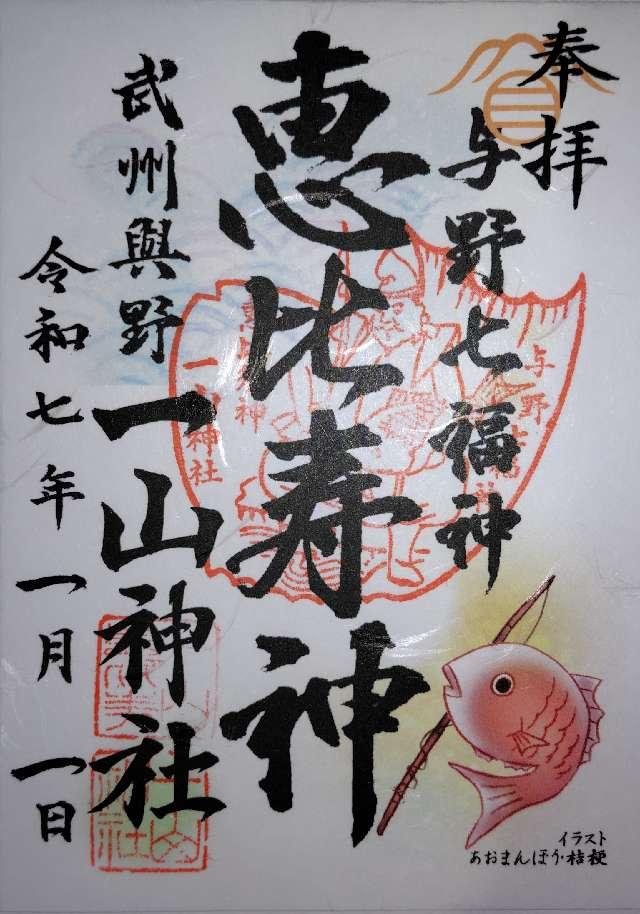 奉拝
与野七福神
恵比寿神
武州與野
一山神社
令和七年一月一日
与野七福神
恵比寿神
一山神社
イラスト
あおまんぼう・桔梗